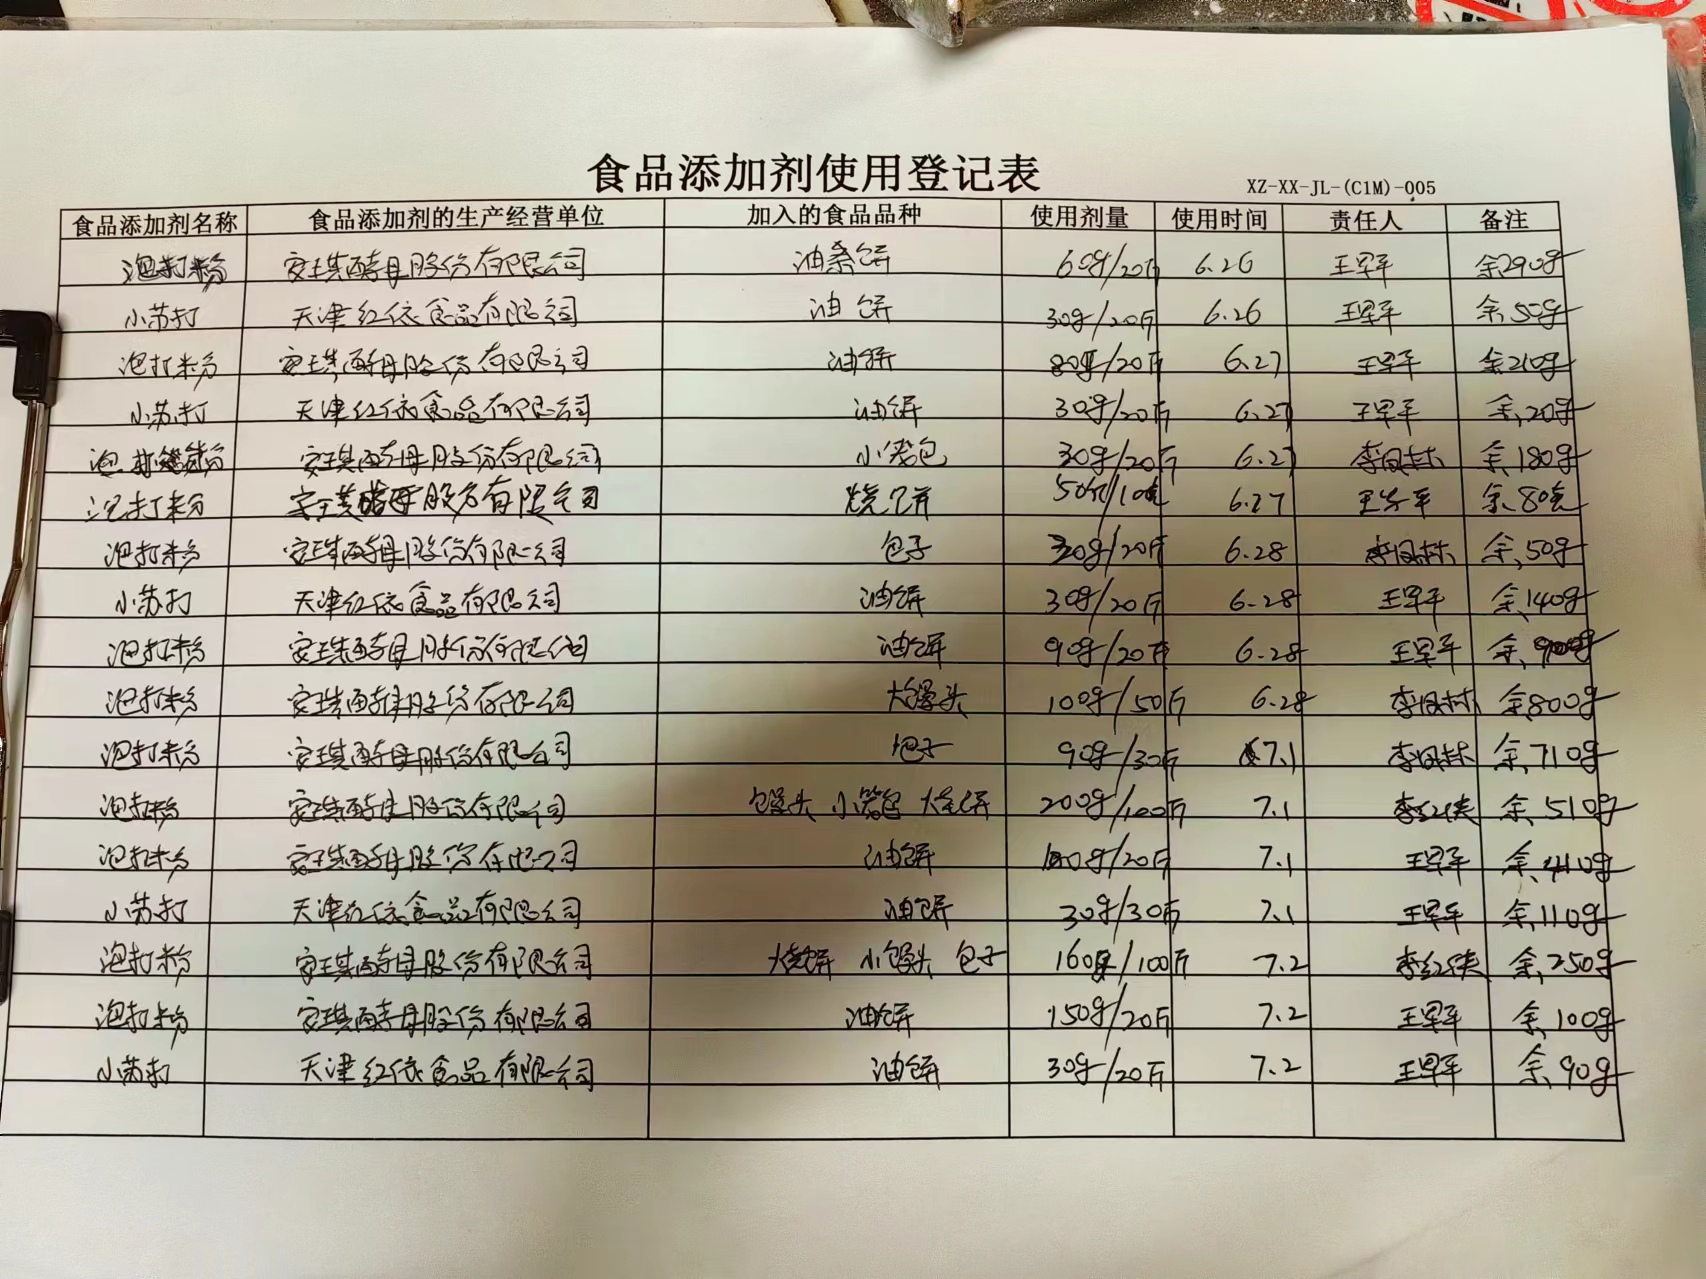 食品添加剂使用登记表
XZ-XX-JL-(C1M)-005
食品添加剂名称 食品添加剂的生产经营单位 加入的食品品种 使用剂量 使用时间 责任人 备注
泡打粉 安琪酵母股份有限公司 油条饼 60g/20斤 6.26 王军平 余290g
小苏打 天津红依食品有限公司 油饼 30g/20斤 6.26 王军平 余50g
泡打粉 安琪酵母股份有限公司 油饼 80g/20斤 6.27 王军平 余210g
小苏打 天津红依食品有限公司 油饼 30g/20斤 6.27 王军平 余20g
泡打粉 安琪酵母股份有限公司 小笼包 30g/20斤 6.27 李凤林 余180g
泡打粉 安琪酵母股份有限公司 烧饼 6.27 王军平 余80克
泡打粉 安琪酵母股份有限公司 包子 30g/20斤 6.28 李凤林 余50g
小苏打 天津红依食品有限公司 油饼 30g/20斤 6.28 王军平 余140g
泡打粉 安琪酵母股份有限公司 油饼 90g/20斤 6.28 王军平 余900g
泡打粉 安琪酵母股份有限公司 大馒头 100g/50斤 6.28 李凤林 余800g
泡打粉 安琪酵母股份有限公司 包子 90g/30斤 7.1 李凤林 余710g
泡打粉 安琪酵母股份有限公司 馒头 小笼包 大饼 200g/100斤 7.1 李红侠 余510g
泡打粉 安琪酵母股份有限公司 油饼 100g/20斤 7.1 王军平 余410g
小苏打 天津红依食品有限公司 油饼 30g/30斤 7.1 王军平 余110g
泡打粉 安琪酵母股份有限公司 烧饼 小馒头 包子 160g/100斤 7.2 李红侠 余250g
泡打粉 安琪酵母股份有限公司 油饼 150g/20斤 7.2 王军平 余100g
小苏打 天津红依食品有限公司 油饼 30g/20斤 7.2 王军平 余90g